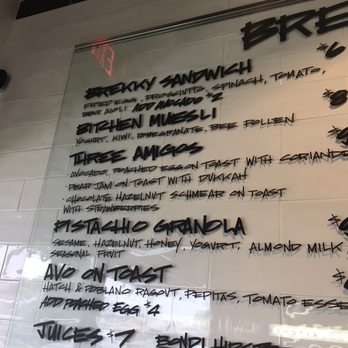 BRE
BREKKY SANDWICH $6
FRIED EGG, PROSCIUTTO, SPINACH, TOMATO,
BEER AIOLI ADD AVOCADO $2
BITCHEN MUESLI
YOGURT, KIWI, POMEGRANATE, BEE POLLEN
THREE AMIGOS
· AVOCADO, POACHED EGG ON TOAST WITH CORIANDE
· PEAR JAM ON TOAST WITH DUKKAH
· CHOCOLATE HAZELNUT SCHMEAR ON TOAST
WITH STRAWBERRIES
PISTACHIO GRANOLA
SESAME, HAZELNUT HONEY, YOGURT, ALMOND MILK
SEASONAL FRUIT
AVO ON TOAST
HATCH & POBLANO RAGOUT, PEPITAS, TOMATO ESSE
ADD POACHED EGG $4
JUICES $7 BONDI HIPSTE